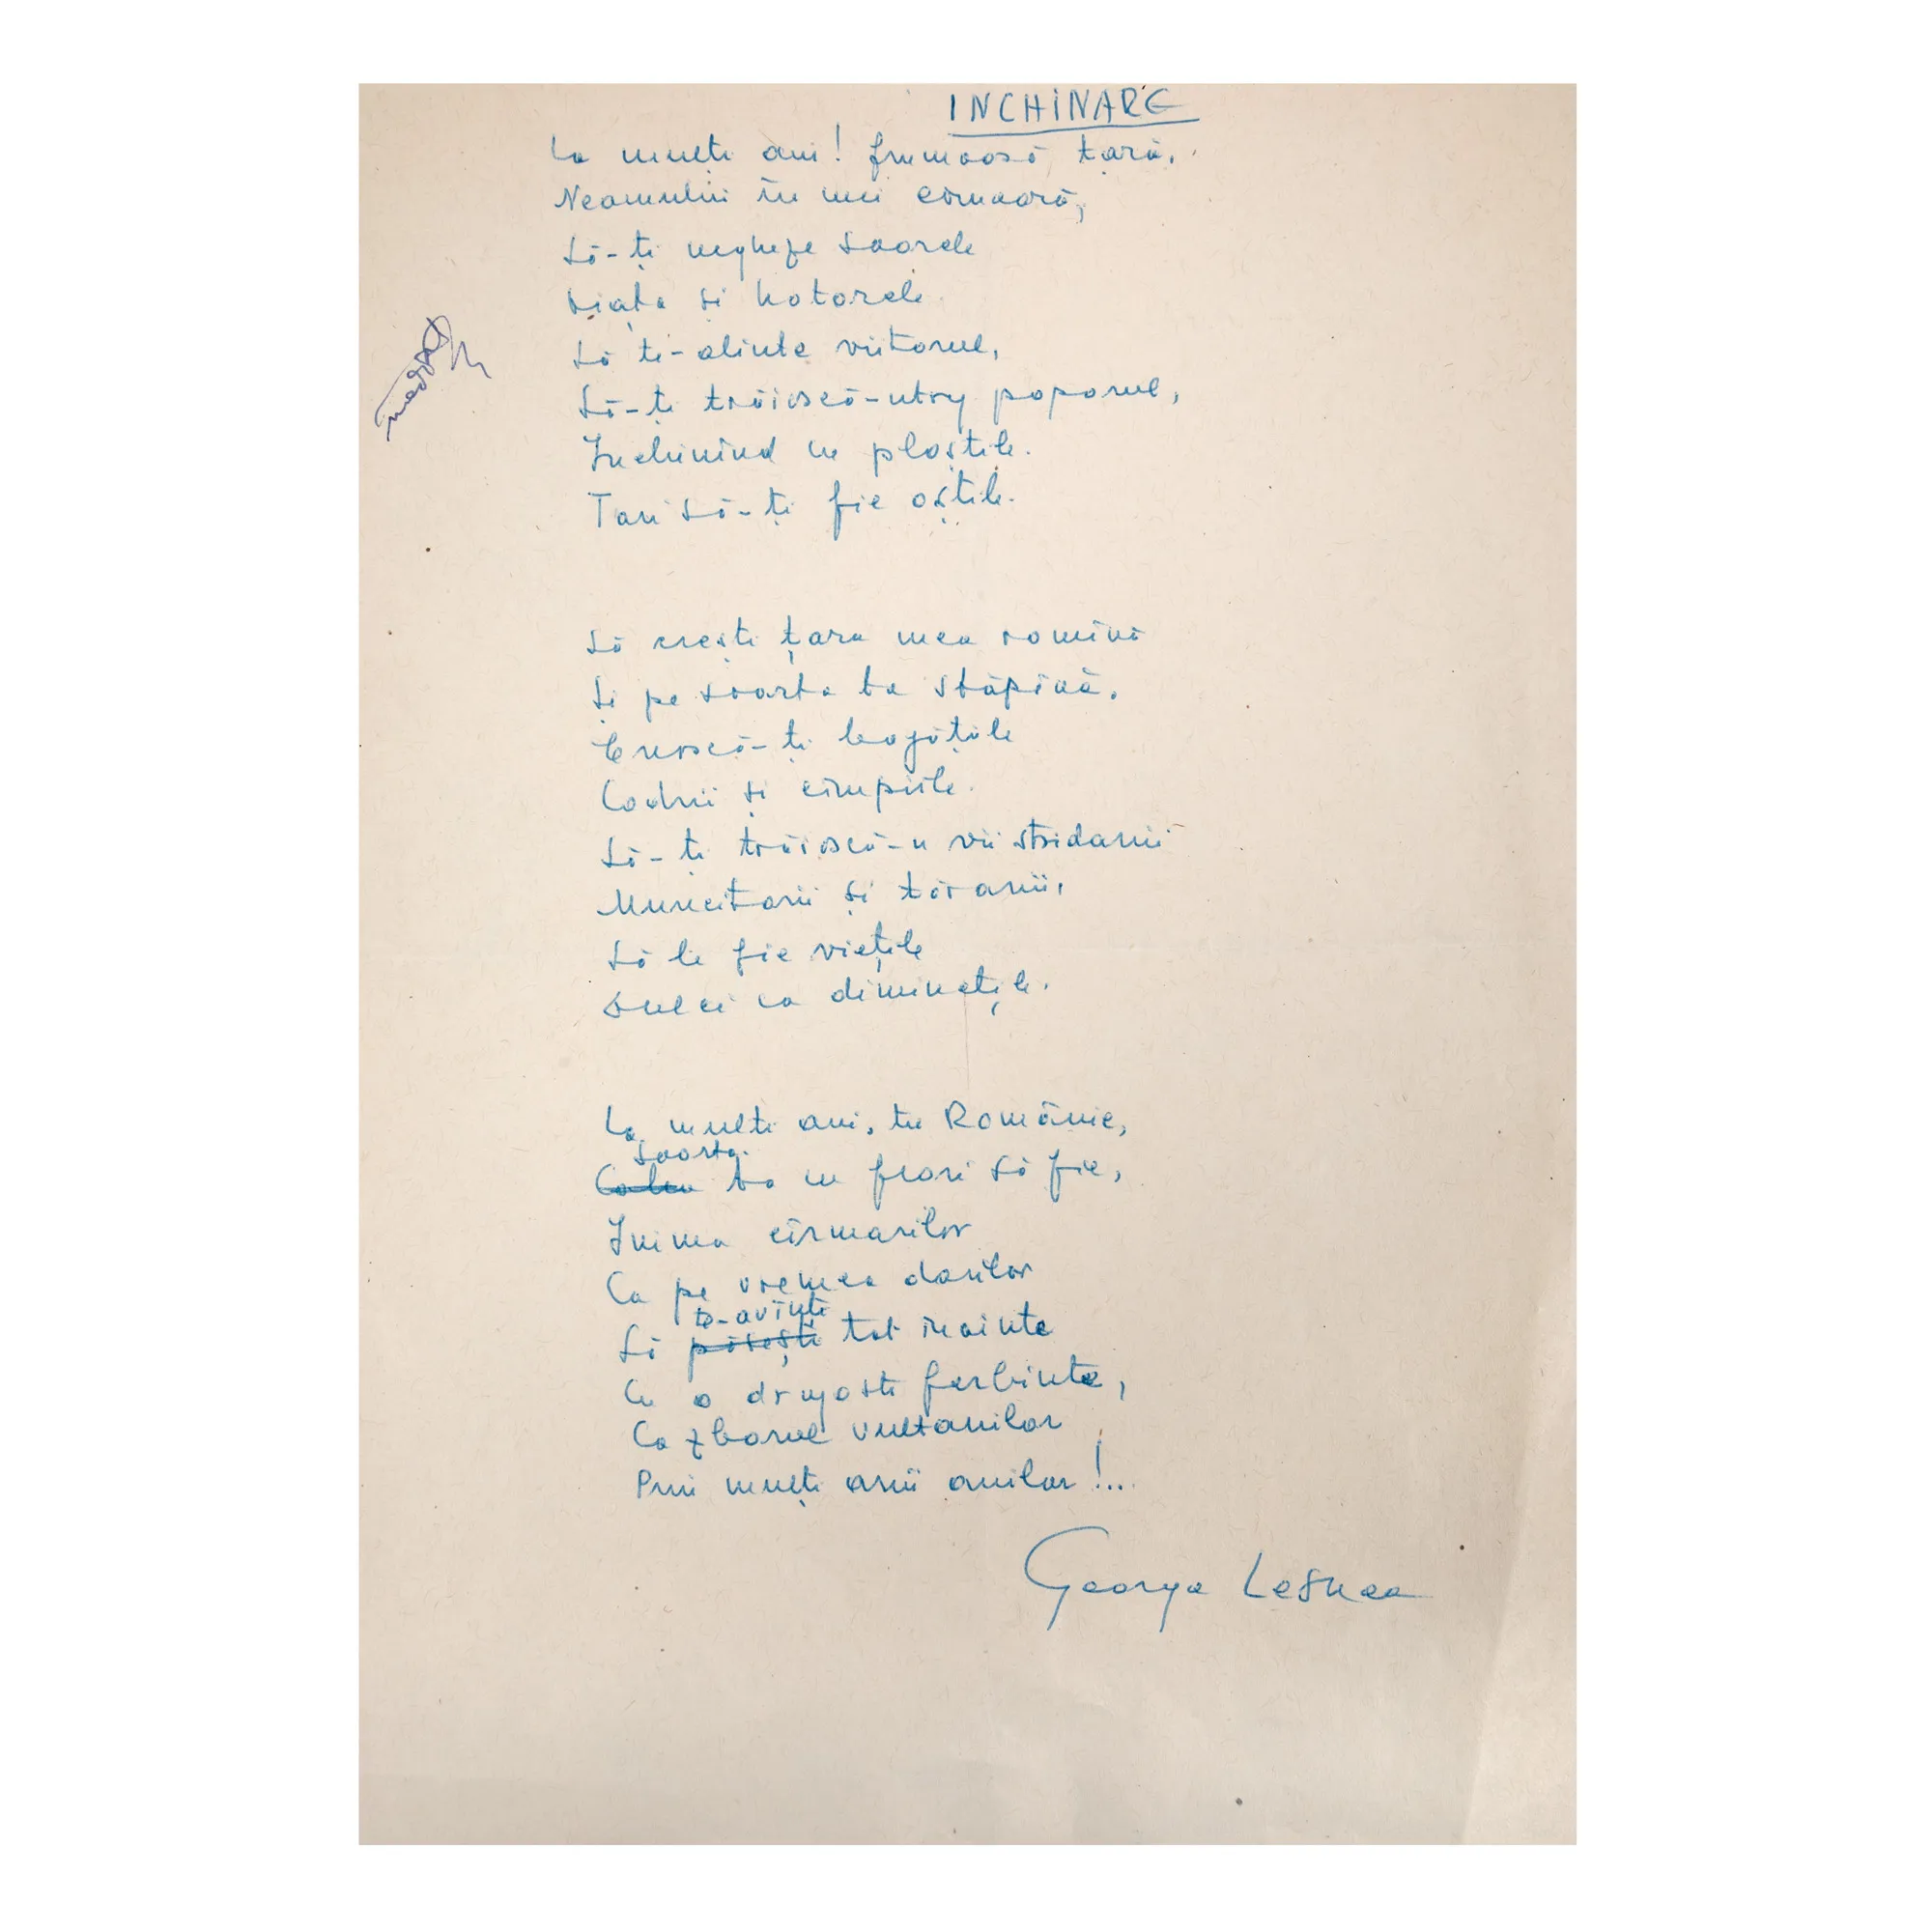 INCHINARE
La mulți ani! frumoasă țară,
Neamului în mei comoară,
Să-ți vegheze soarele
Viața și hotarele
Să te-alinte viitorul,
Să-ți trăiască-ntreg poporul,
Închinînd cu ploștile.
Tari să-ți fie oștile.
Să crești țara mea romînă
Și pe soarta ta stăpînă.
Crească-ți bogățiile
Codrii și cîmpiile.
Să-ți trăiască-n vii strădanii
Muncitorii și țăranii,
Să le fie viețile
Dulci ca diminețile.
La mulți ani, tu Românie,
soarta
Calea ta cu flori să fie,
Inima cîrmacilor
Ca pe vremea dacilor
te-avînți
Să pășești tot înainte
Cu o dragoste fierbinte,
Ca zborul vulturilor
Prin mulți anii anilor!...
George Lesnea